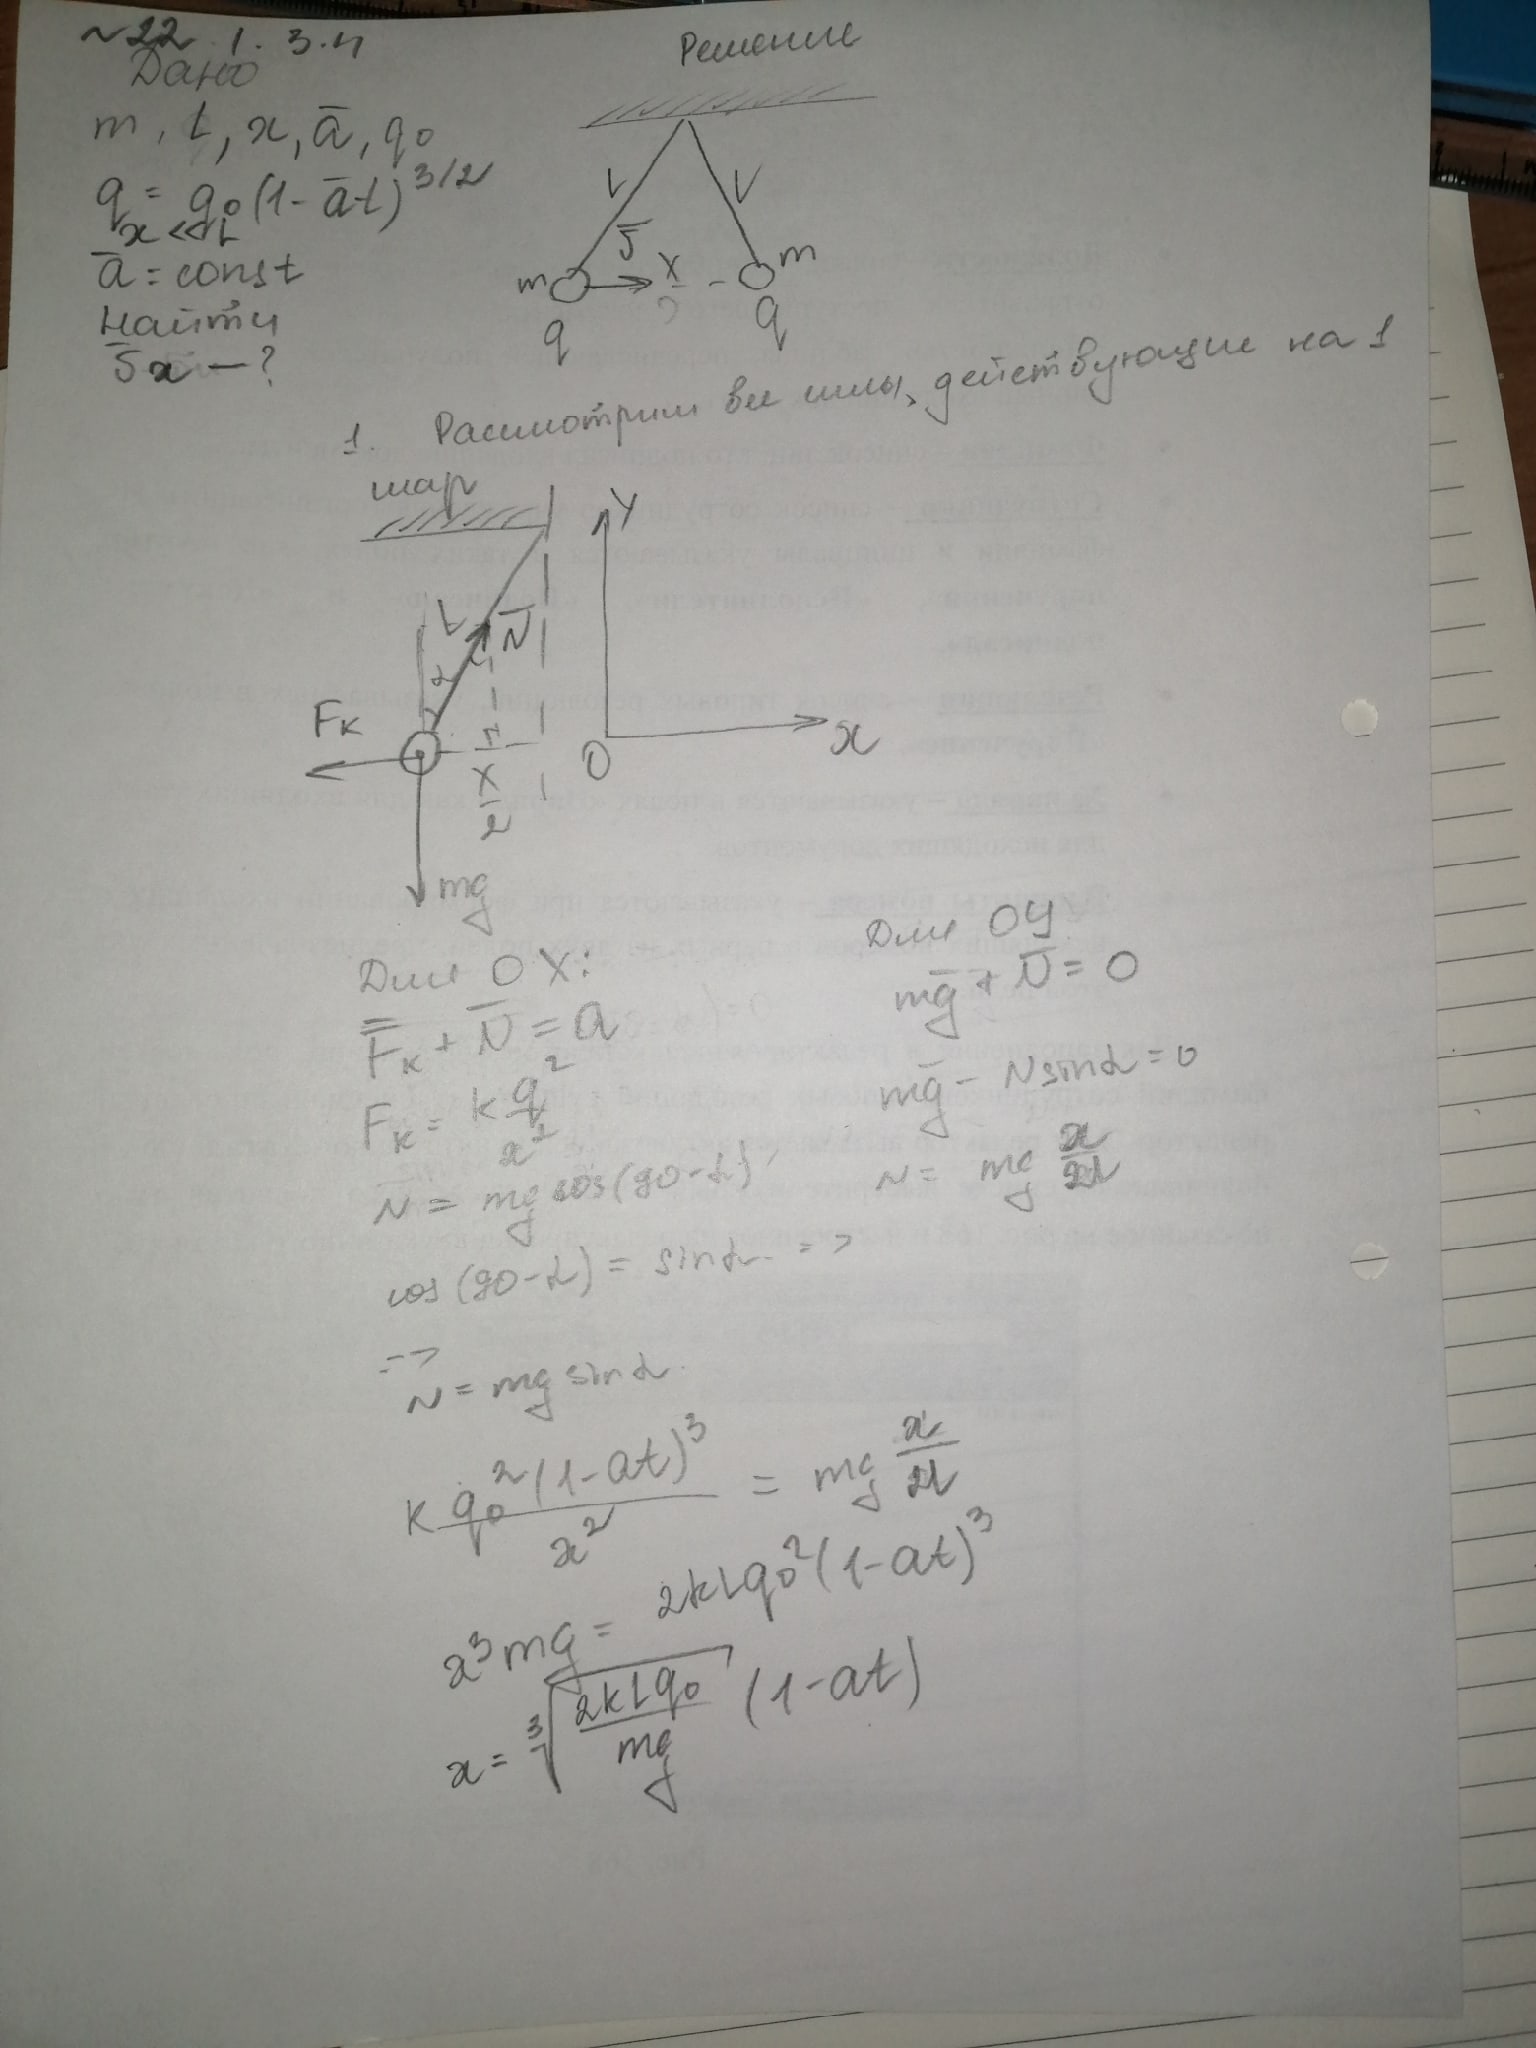 ~22 1. 3.4
Дано
Решение
m, L, x, a̅, q₀
q = q₀(1-a̅t)^3/2
x << L
a̅ = const
Найти
υ̅x - ?
L
L
υ̅
m
x
m
q
q
1. Рассмотрим все силы, действующие на 1
шар
Y
L
N̅
α
Fк
x/2
O
x
mg
Для OX:
F̅к + N̅ = a
Fк = k q²/x²
N = mg cos(90-α)
cos(90-α) = sinα =>
=>
N = mg sinα.
Для OY
mg̅ + N̅ = 0
mg̅ - N sinα = 0
N = mg x/2L
k q₀²(1-at)³/x² = mg x/2L
x³mg = 2kLq₀²(1-at)³
x = ∛(2kLq₀/mg) (1-at)